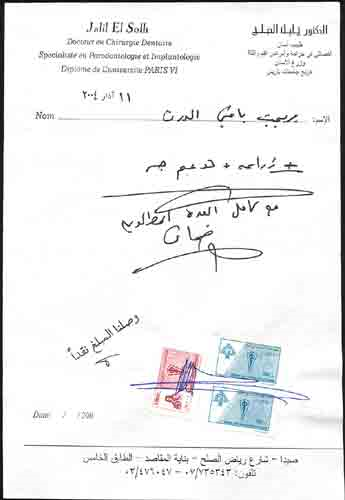 Jalil El Solh
Docteur en Chirurgie Dentaire
Specialiste en Parodontologie et Implantologie
Diplome de L'universite PARIS VI
الدكتور جليل الصلح
طبيب أسنان
وزرع الأسنان
خريج جامعات باريس
١١ آذار ٢٠٠٤
Nom
الإسم:
زراعة + تدعيم
مع كامل العدة المطلوبة
ضمان
وصلنا المبلغ نقداً
Date: / /200
صيدا - شارع رياض الصلح - بناية المقاصد - الطابق الخامس
تلفون: ٠٧/٧٣٥٣٤٣ - ٠٣/٤٧٦٠٤٧